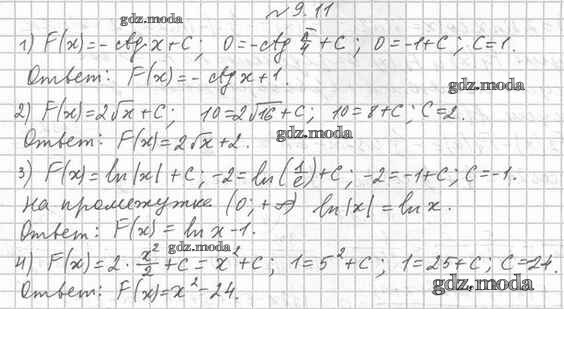 № 9.11
gdz.moda
1) F(x)=-ctg x+C; 0=-ctg π/4+C; 0=-1+C; C=1.
Ответ: F(x)=-ctg x+1.
gdz.moda
2) F(x)=2√x+C; 10=2√16+C; 10=8+C; C=2.
Ответ: F(x)=2√x+2.
gdz.moda
3) F(x)=ln|x|+C; -2=ln(1/e)+C; -2=-1+C; C=-1.
На промежутке (0;+∞) ln|x|=ln x.
Ответ: F(x)=ln x-1.
gdz.moda
4) F(x)=2·x²/2+C=x²+C; 1=5²+C; 1=25+C; C=24.
Ответ: F(x)=x²-24.
gdz.moda